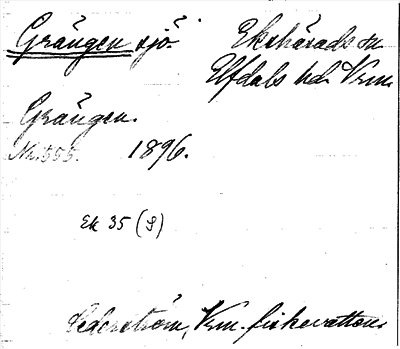 Grängen sjö.
Ekshärads sn
Elfdals hd. Vrm.
Grängen.
Nr. 555. 1896.
Ek 35 (S)
Cederström, Vrm. fiskevatten